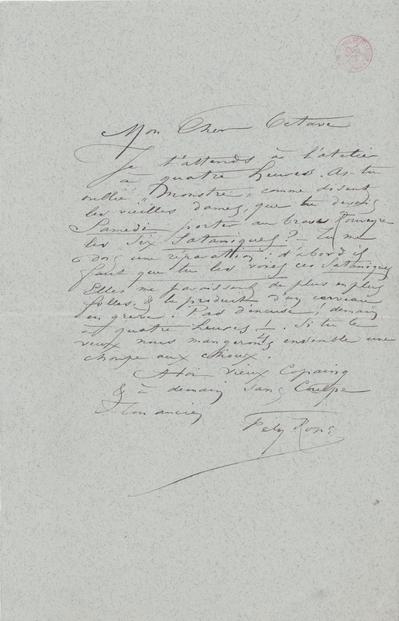 Mon Cher Octave
Je t'attends à l'atelier
à quatre heures. As-tu
oublié « Monstre », comme disent
les vieilles dames, que tu devais
Samedi porter au brave
les Six Sataniques ? Tu me
dois une réparation : d'abord il
faut que tu les voies ces Sataniques
Elles me paraissent de plus en plus
folles, & le produit d'un cerveau
en grève. Pas d'excuse, demain
à quatre heures ! Si tu le
veux nous mangerons ensemble une
choupe aux choux.
A toi vieux Copaing
& à demain Sans
Ton ancien
Fély Rops